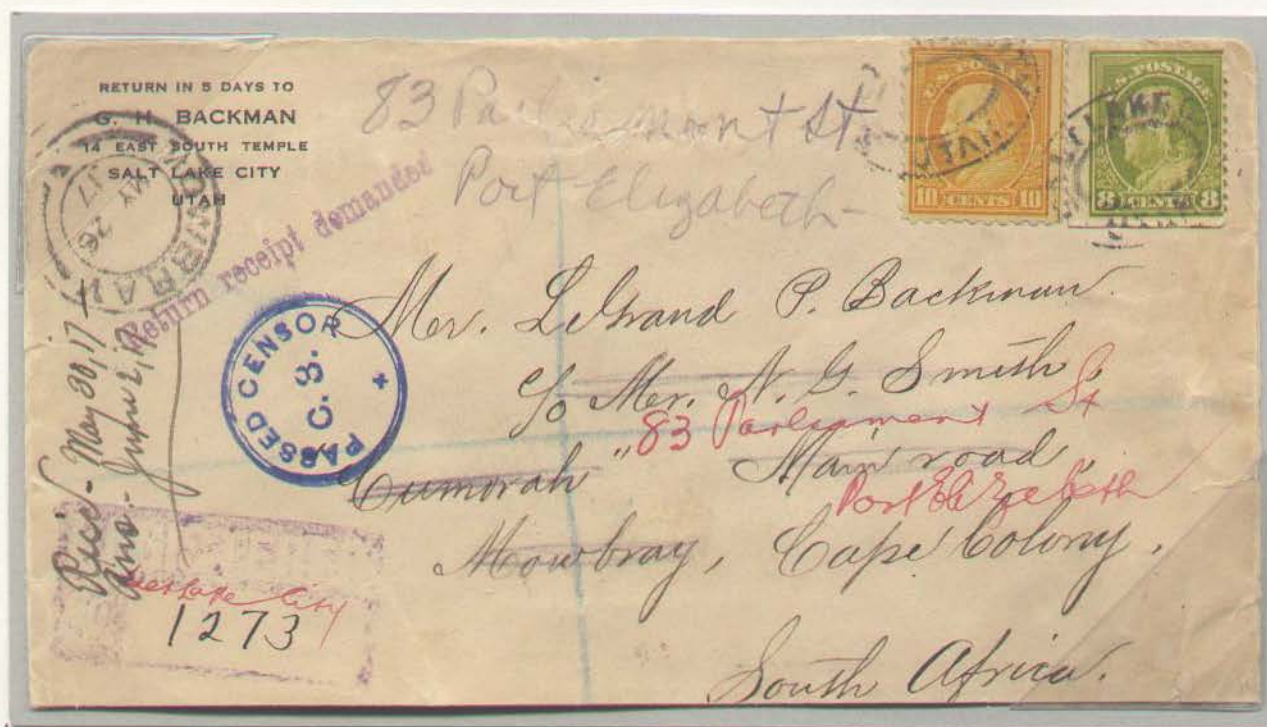 RETURN IN 5 DAYS TO
G. H. BACKMAN
14 EAST SOUTH TEMPLE
SALT LAKE CITY
UTAH
83 Parliament St
Port Elizabeth
U.S. POSTAGE
UTAH
10 CENTS 10
U.S. POSTAGE
8 CENTS 8
MOWBRAY
MY 26
17
Return receipt demanded
PASSED CENSOR
C. 3.
Mr. LeGrand P. Backman.
c/o Mr. N. G. Smith,
83 Parliament St
"Cumorah" Main road,
Port Elizabeth
Mowbray, Cape Colony,
South Africa.
Rec'd - May 30, 17
Ans. - June 2, 17
Salt Lake City
1273